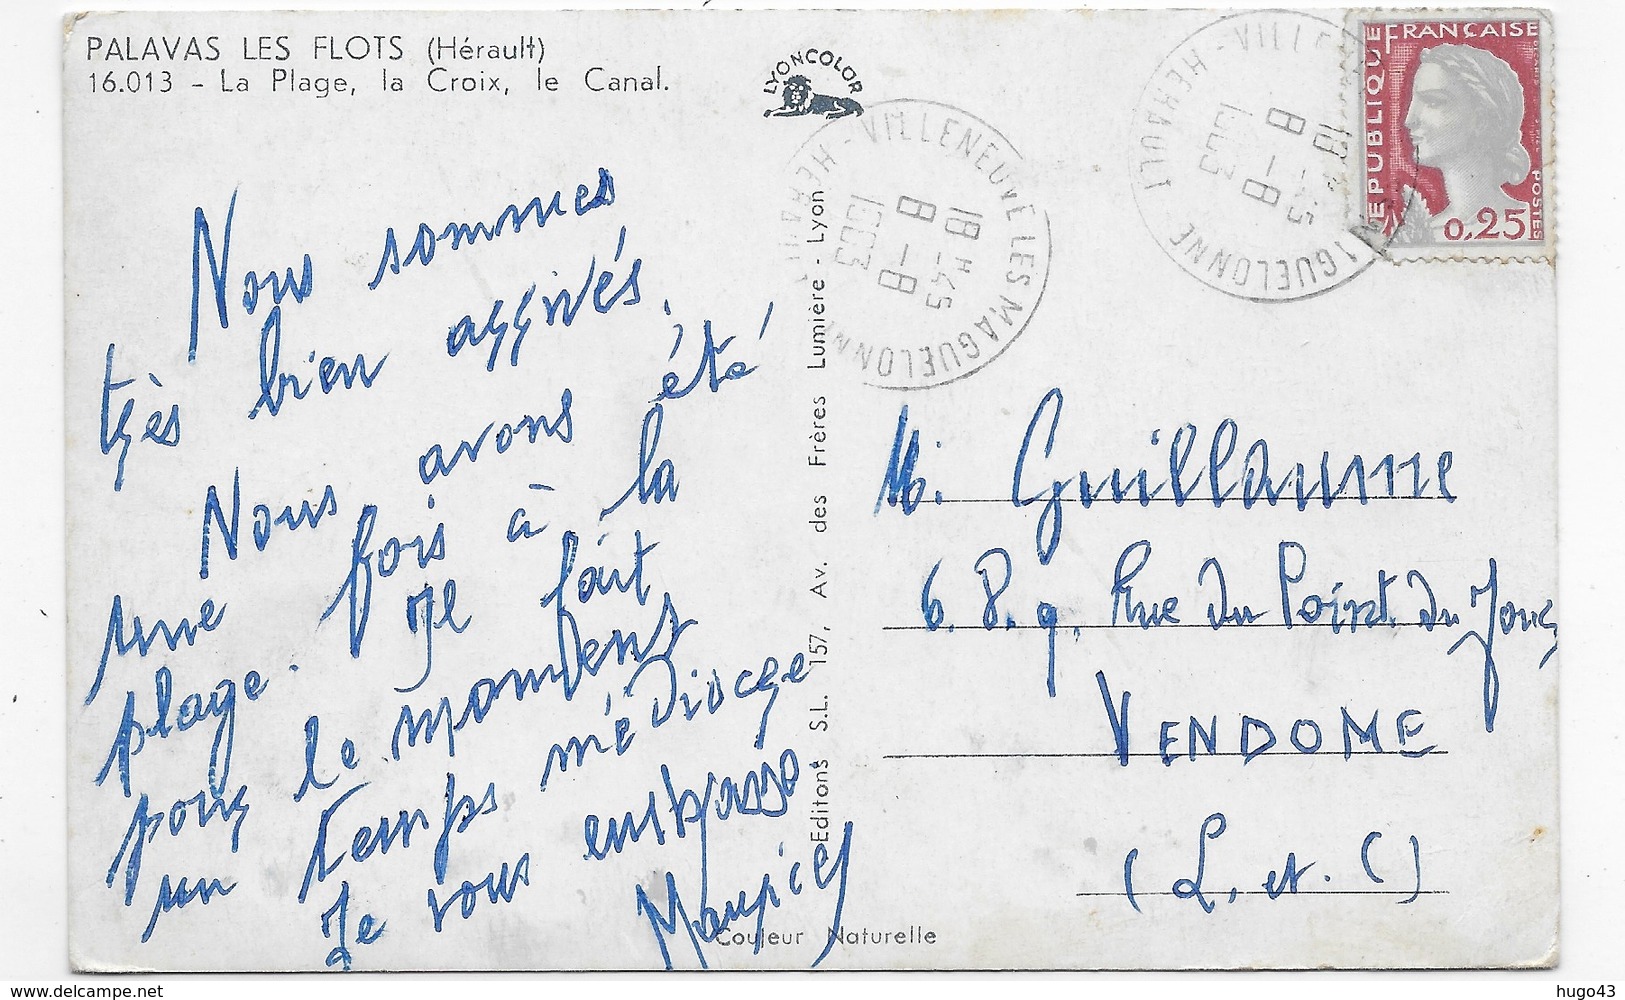 PALAVAS LES FLOTS (Hérault)
16.013 - La Plage, la Croix, le Canal.
LYONCOLOR
Nous sommes
très bien arrivés.
Nous avons été
une fois à la
plage. Il fait
pour le moment
un temps médiocre
Je vous embrasse
Maurice
Editons S.L. 157, Av. des Frères Lumière - Lyon
Couleur Naturelle
VILLENEUVE LES MAGUELONNE - HERAULT
18 H -45
8 -8
1963
VILLENEUVE LES MAGUELONNE - HERAULT
18 H -45
8 -8
1963
REPUBLIQUE FRANÇAISE
POSTES
0,25
M. Guillaume
6. P. 9. Rue du Point du Jour
VENDOME
(L. et. C)
https://www.delcampe.net
hugo43